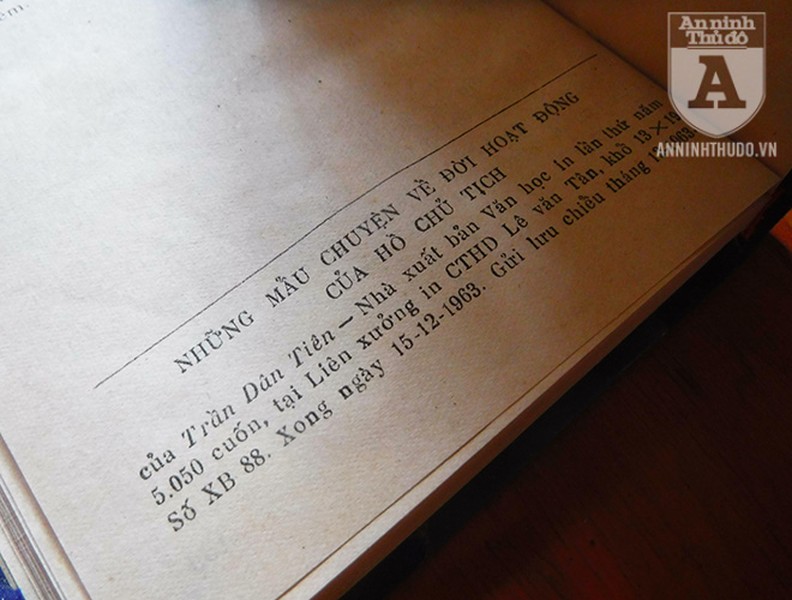 An ninh
Thủ đô
A
ANNINHTHUDO.VN
NHỮNG MẨU CHUYỆN VỀ ĐỜI HOẠT ĐỘNG
CỦA HỒ CHỦ TỊCH
của Trần Dân Tiên — Nhà xuất bản Văn học in lần thứ năm
5.050 cuốn, tại Liên xưởng in CTHD Lê văn Tân, khổ 13×19
Số XB 88. Xong ngày 15-12-1963. Gửi lưu chiểu tháng